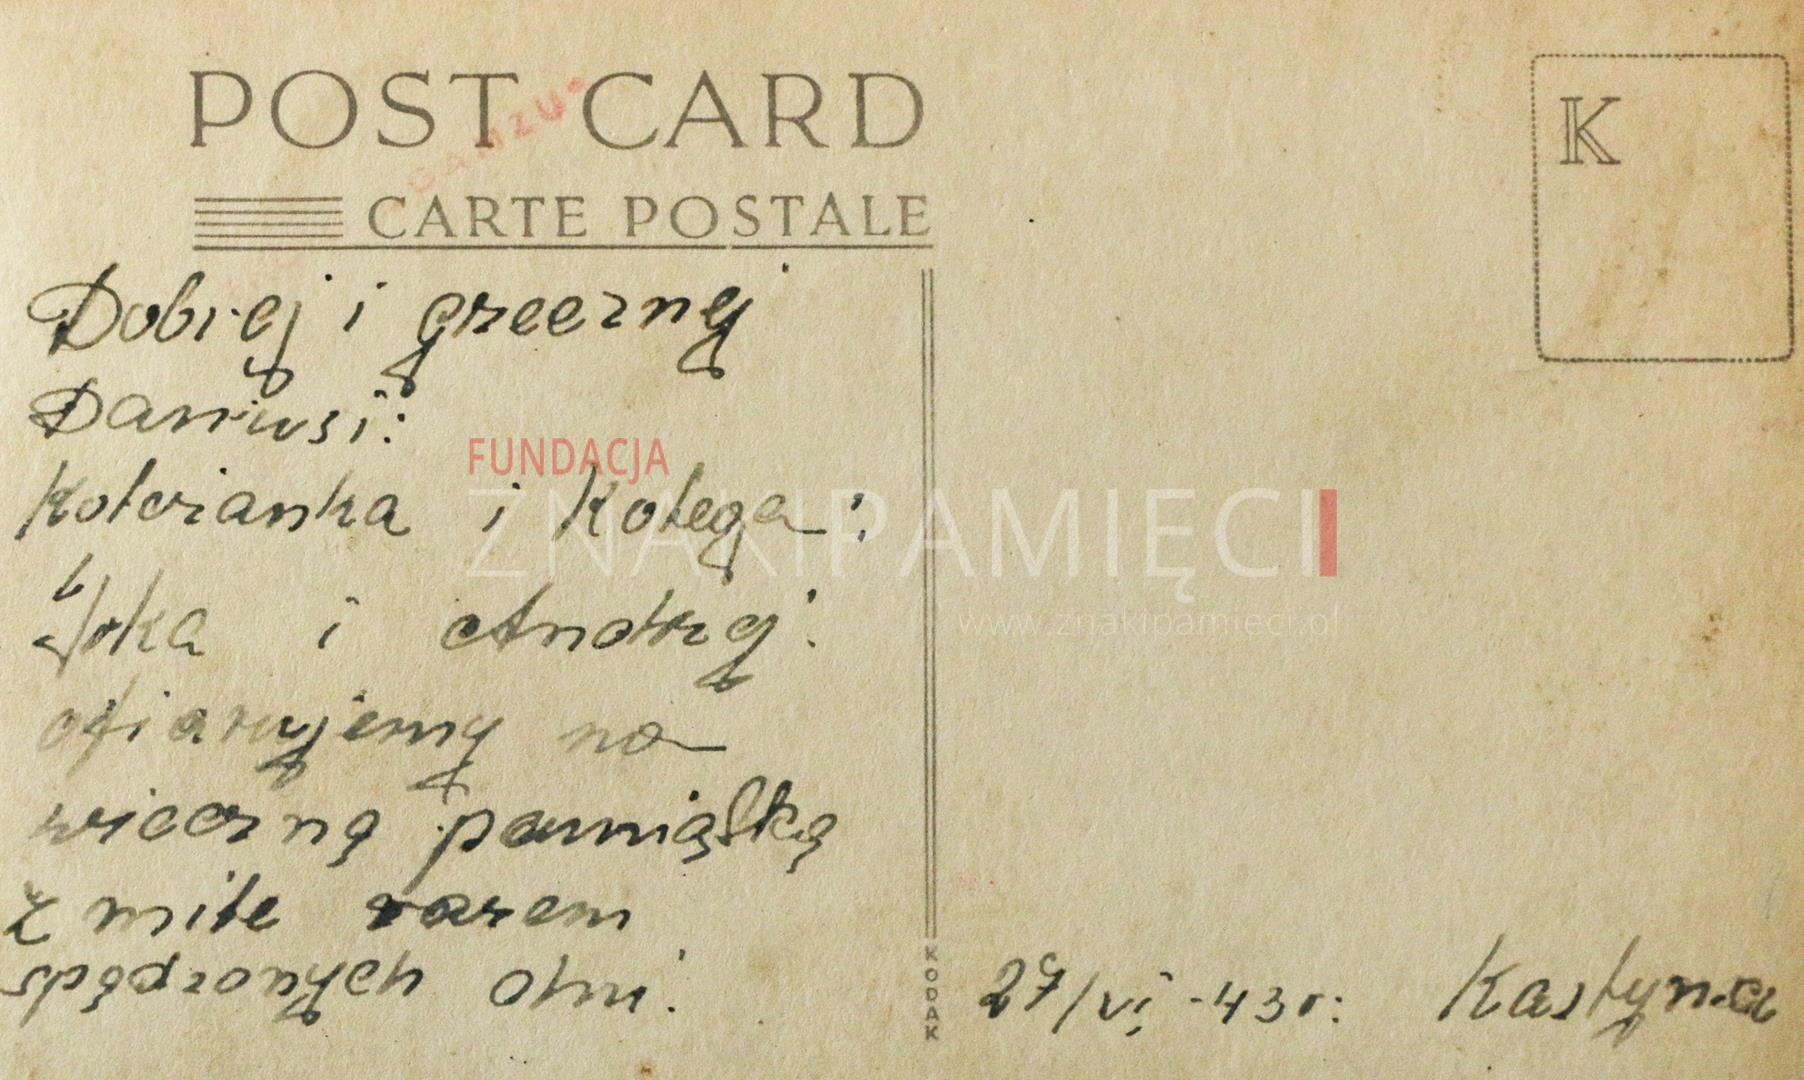 POST CARD
GAMZU
CARTE POSTALE
K
Dobrej i grzecznej
Danusi:
Koleżanka i Kolega:
i Andrzej:
ofiarujemy na
wieczną pamiątkę
z mile razem
spędzonych dni.
27/VI-43r:
KODAK
FUNDACJA
ZNAKI PAMIĘCI
www.znakipamieci.pl